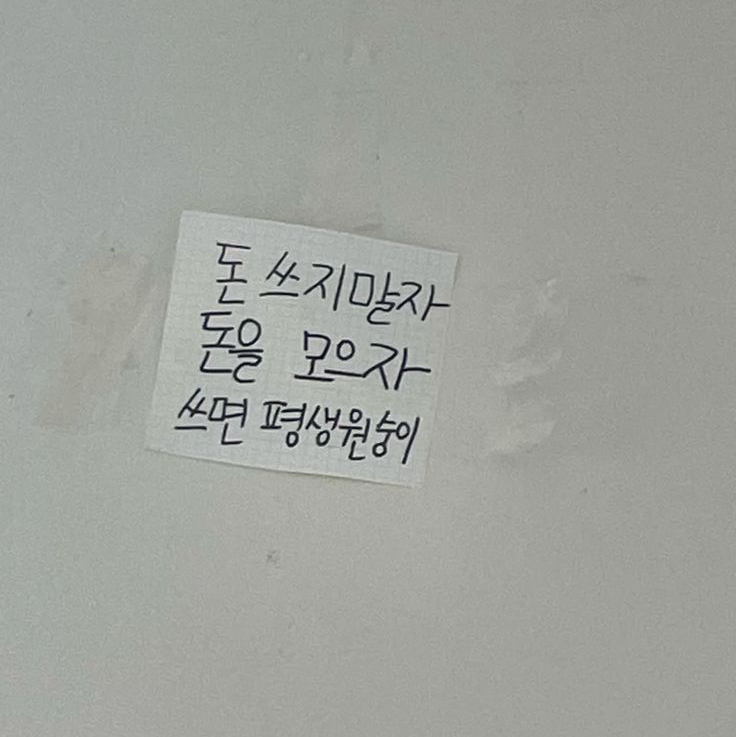 돈 쓰지말자
돈을 모으자
쓰면 평생원숭이